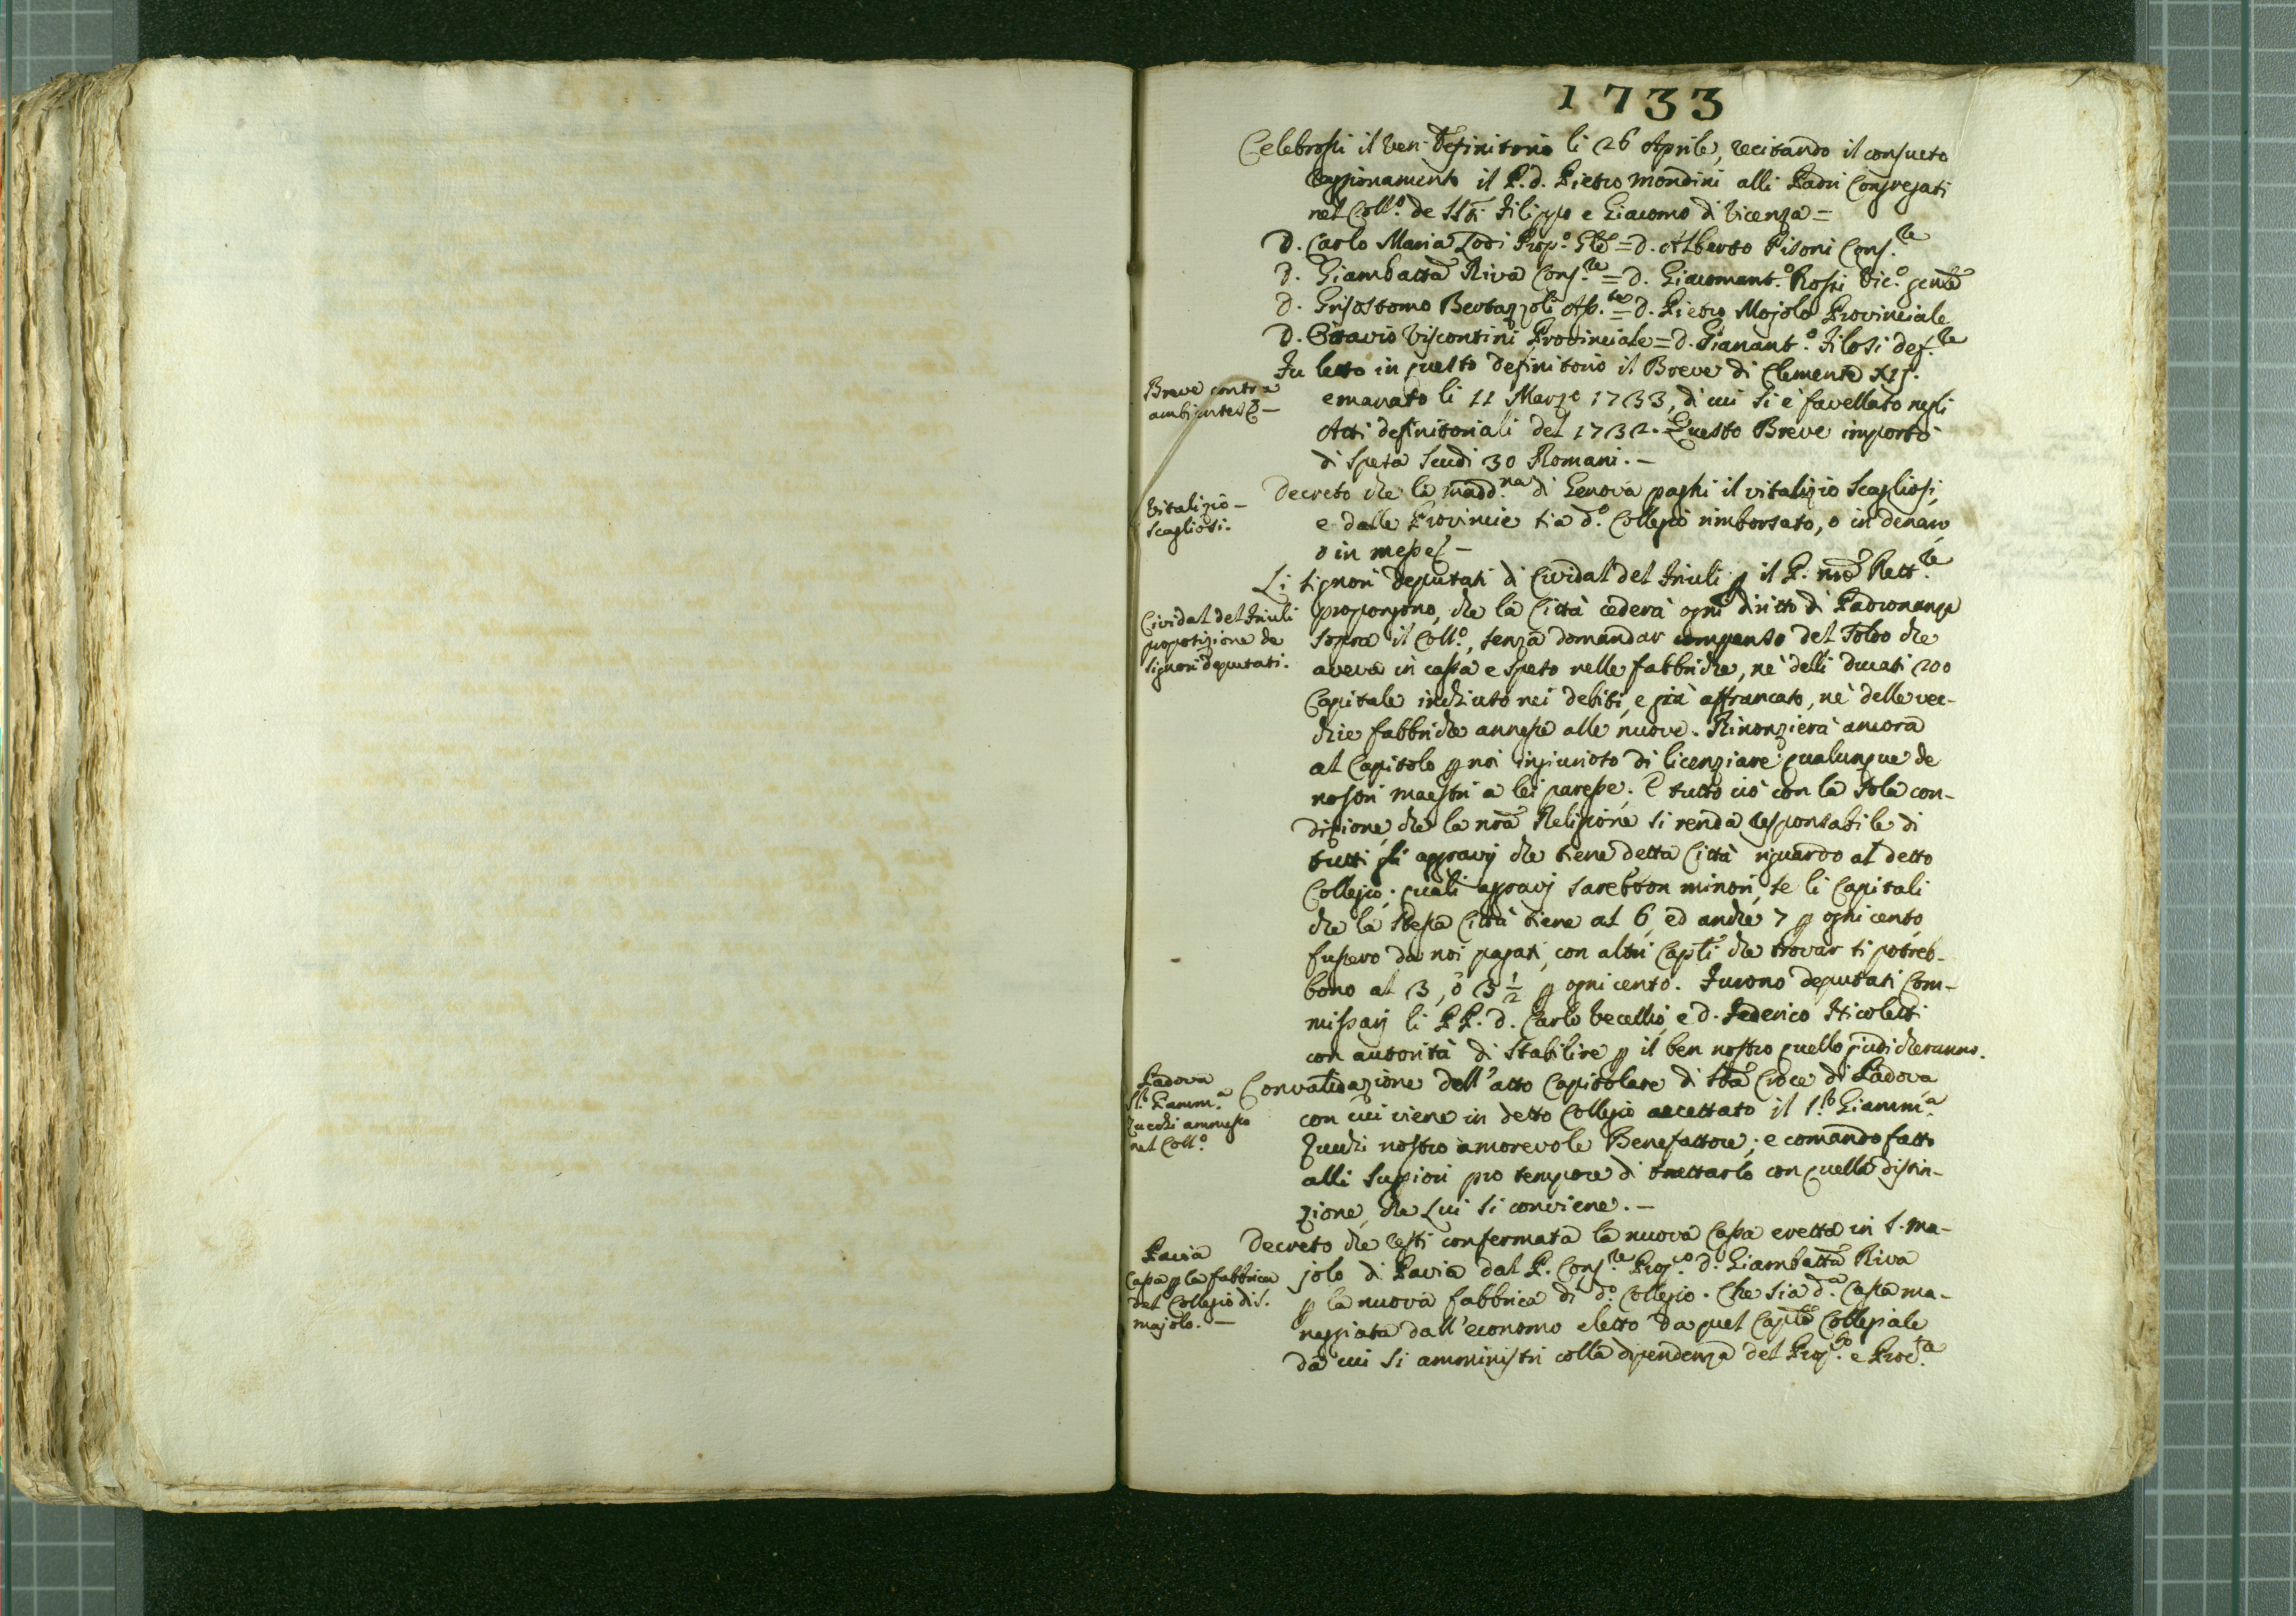 1733
Celebrossi il Ven: Definitorio li 26 Aprile, recitando il consueto
raggionamento il P. d. Pietro Mondini alli Padri Congregati
nel Coll.º de SSti Filippo e Giacomo di Vicenza =
D. Carlo Maria Lodi Prep.º Gle = D. Alberto Pisoni Cons.re
D. Giambatta Riva Cons.re = D. Giacomant.º Rossi Vic.º gen̄le
D. Grisostomo Bertazzoli Ass.te = D. Pietro Mojolo Provinciale
D. Ottavio Viscontini Provinciale = D. Gianant.º Filosi def.re
Breve contra
ambientes &c –
Fu letto in questo definitorio il Breve di Clemente XII.
emanato li 11 Marzo 1733, di cui si è favellato negli
Atti definitoriali del 1732. Questo Breve importò
di spesa scudi 30 Romani. –
Vitalizio –
Scagliosi.
Decreto che la Madd.na di Genova paghi il vitalizio Scagliosi,
e dalle Provincie sia d.º Collegio rimborsato, o in denaro
o in messe –
Cividal del Friuli
proposizione de
Signori deputati.
Li Signori Deputati di Cividal del Friuli ꝑ il P. nr̄o Rett.re
propongono, che la Città cederà ogni diritto di Padronanza
sopra il Coll.º, senza domandar compenso del Soldo che
aveva in cassa e speso nelle fabbriche, nè delli Ducati 200
Capitale inchiuto nei debiti, e già affrancato, nè delle vec-
chie fabbriche annesse alle nuove. Rinonzierà ancora
al Capitolo ꝑ noi ingiurioso di licenziare qualunque de
nostri maestri a lei paresse. E tutto ciò con la sola con-
dizione, che la nr̄a Religione si renda responsabile di
tutti gli aggravij che tiene detta Città riguardo al detto
Collegio; quali aggravj sarebbon minori, se li Capitali
che la stessa Città tiene al 6, ed anche 7 ꝑ ogni cento,
fussero da noi pagati, con altri Capli che trovar si potreb-
bono al 3, ò 3 ½ ꝑ ogni cento. Furono deputati Com-
missarj li PP. d. Carlo Vecellio, e d. Federico Nicoletti
con autorità di stabilire ꝑ il ben nostro quello giudicheranno.
Padova
Sr. Giamm.a
Zucchi ammesso
nel Coll.º
Convalidazione dell'atto Capitolare di Sta Croce di Padova
con cui viene in detto Collegio accettato il S.r Giamm.a
Zucchi nostro amorevole Benefattore; e comando fatto
alli Supiori pro tempore di trattarlo con quella distin-
zione, che Lui si conviene. –
Pavia
Cassa ꝑ la fabbrica
del Collegio di S.
Majolo. –
Decreto che resti confermata la nuova Cassa eretta in S. Ma-
jolo di Pavia dal P. Cons.re Prep.to d. Giambatta Riva
ꝑ la nuova fabbrica di d.º Collegio. Che sia d.a Cassa ma-
neggiata dall'economo eletto da quel Caplo Collegiale
da cui si amministri colla dipendenza del Prep.to e Proc.ra